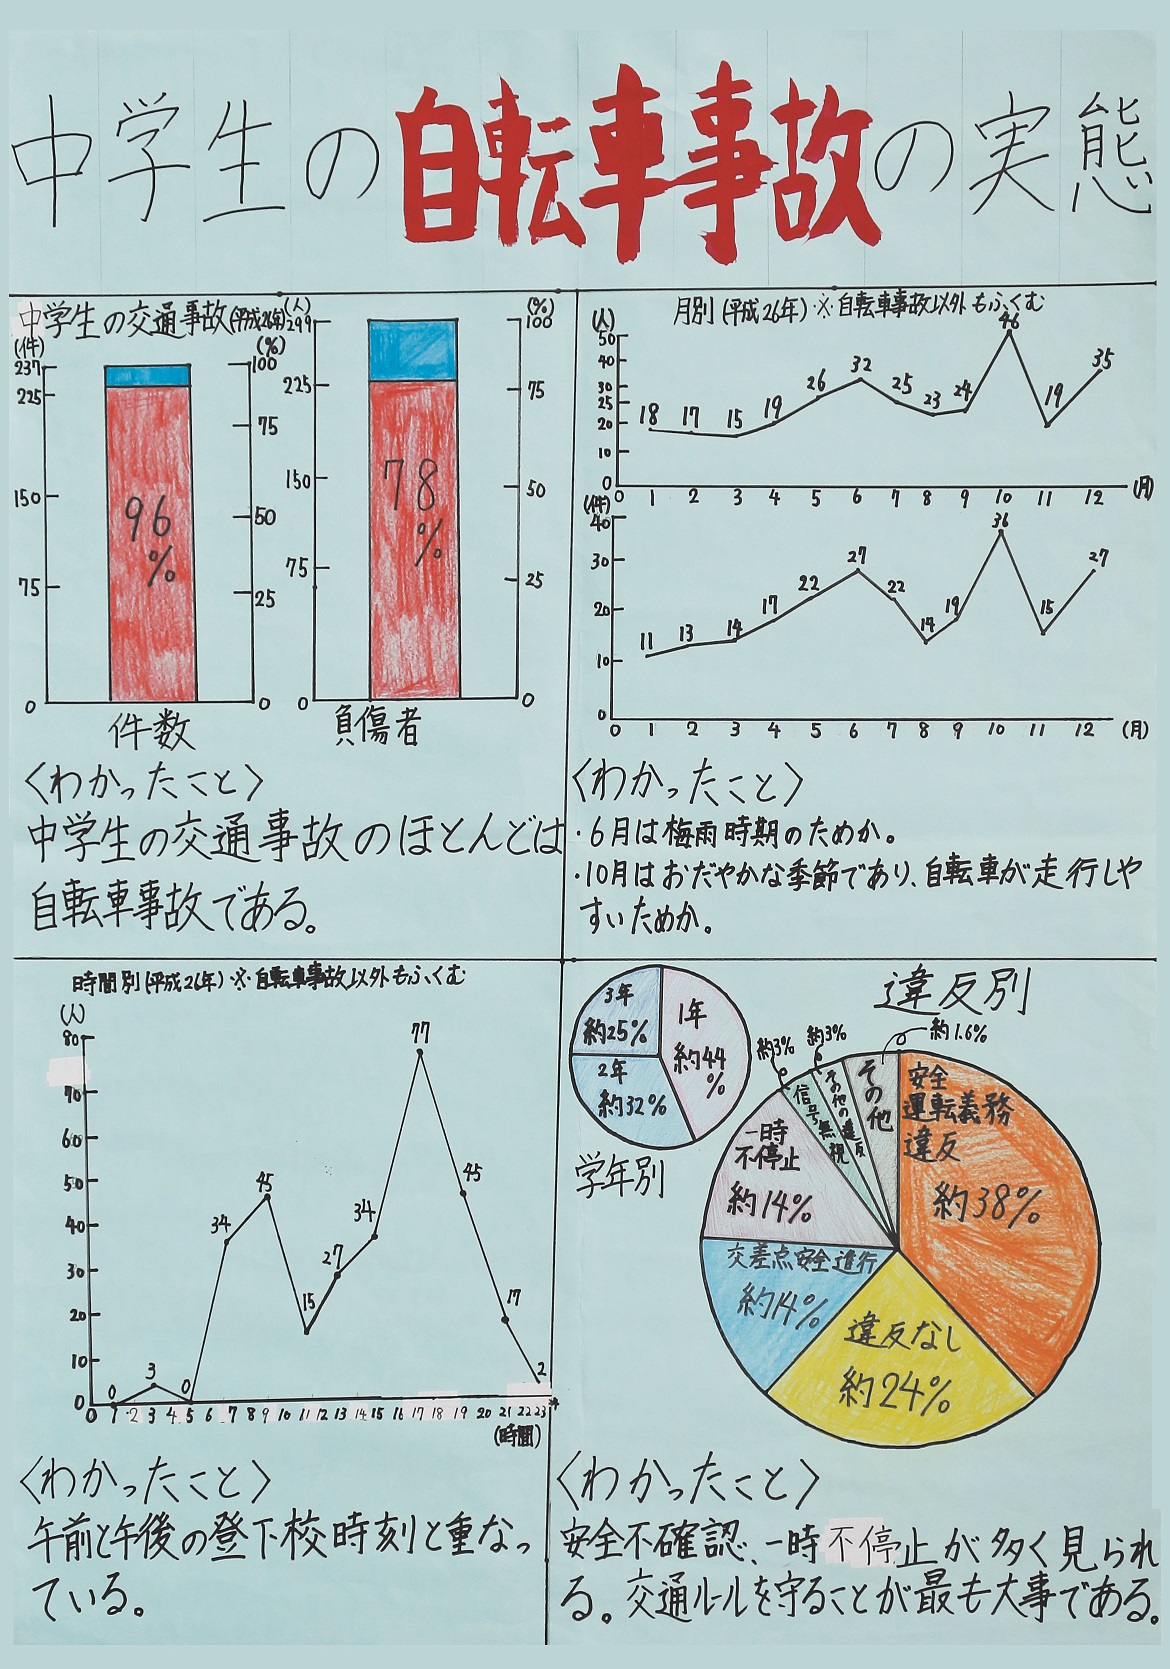 中学生の自転車事故の実態
中学生の交通事故(平成26年)
(件)
237
225
150
75
0
(%)
100
75
50
25
0
96
%
件数
(人)
299
225
150
75
0
(%)
100
75
50
25
0
78
%
負傷者
〈わかったこと〉
中学生の交通事故のほとんどは
自転車事故である。
月別(平成26年)※自転車事故以外もふくむ
(人)
50
40
30
25
20
10
0
18 17 15 19 26 32 25 23 24 46 19 35
0 1 2 3 4 5 6 7 8 9 10 11 12 (月)
(件)
40
30
20
10
0
11 13 14 17 22 27 22 14 19 36 15 27
0 1 2 3 4 5 6 7 8 9 10 11 12 (月)
〈わかったこと〉
・6月は梅雨時期のためか。
・10月はおだやかな季節であり、自転車が走行しや
すいためか。
時間別(平成26年)※自転車事故以外もふくむ
(人)
80
70
60
50
40
30
20
10
0
0 3 0 34 45 15 27 34 77 45 17 2
0 1 2 3 4 5 6 7 8 9 10 11 12 13 14 15 16 17 18 19 20 21 22 23
(時間)
〈わかったこと〉
午前と午後の登下校時刻と重なっ
ている。
3年
約25%
1年
約44
%
2年
約32%
学年別
違反別
約3%
約3%
約1.6%
安全
運転義務
違反
約38%
違反なし
約24%
交差点安全進行
約14%
一時
不停止
約14%
信号無視
その他の違反
その他
〈わかったこと〉
安全不確認、一時不停止が多く見られ
る。交通ルールを守ることが最も大事である。